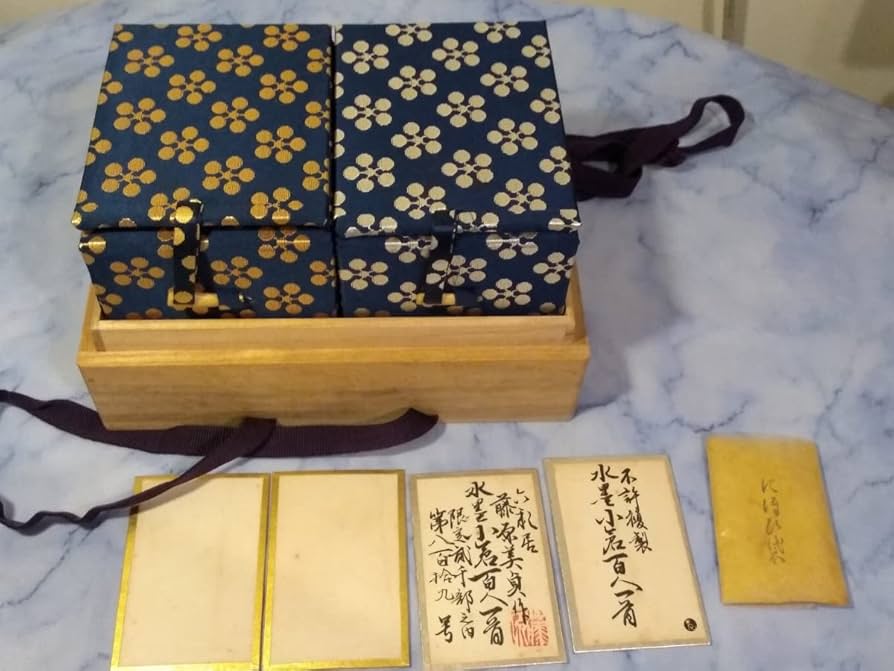 六礼居
藤原美貞作
水墨小倉百人一首
限定貳千部之内
第八百拾九号
不許複製
水墨小倉百人一首